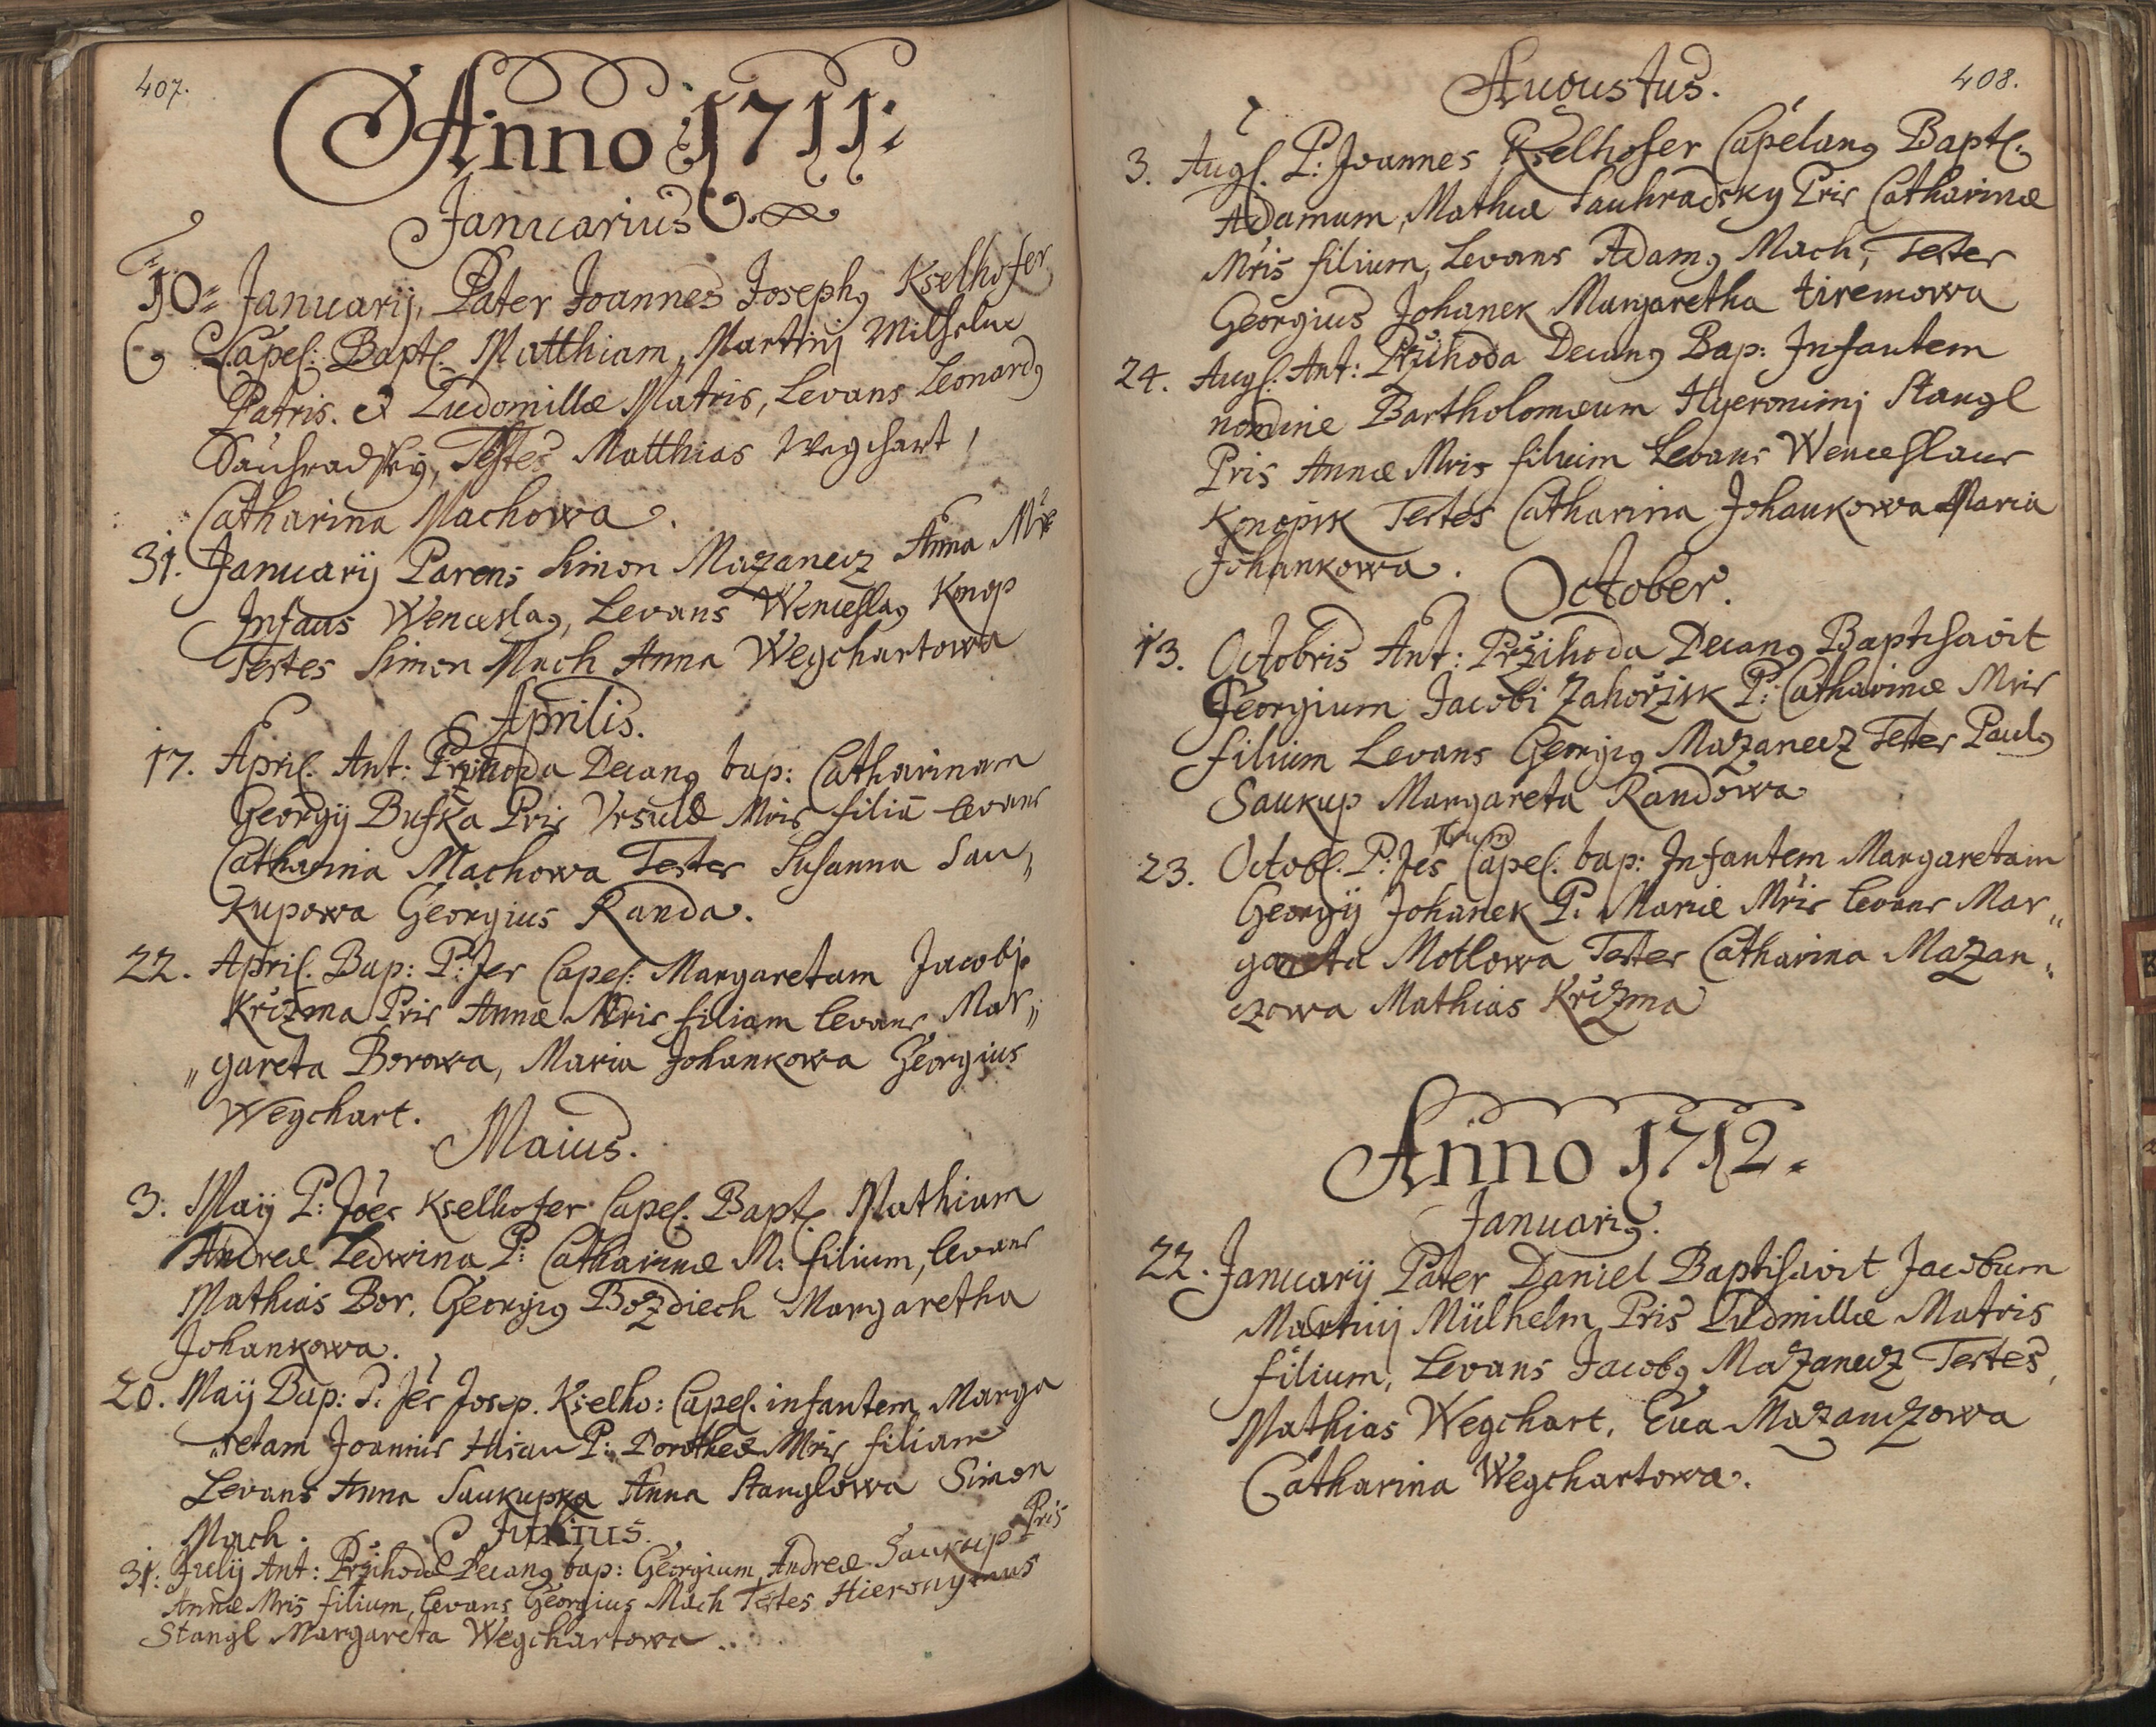 407.
Anno 1711.
Januarius
10 Januarij, Pater Joannes Josephus Kselhofer
Capel: Bapt. Matthiam, Martinj Milhelm
Patris. et Ludomillæ Matris, Levans Leonardus
Sauhradsky, Testes Matthias Wegchart,
Catharina Machowa.
31. Januarij Parens Simon Mazanecz Anna Mr
Infans Wenceslaus, Levans Wenceslaus Konop
Testes Simon Mach Anna Wegchartowa
Aprilis.
17. April. Ant: Przihoda Decanus bap: Catharinam
Georgij Buska Pris Ursulæ Mris filiā levans
Catharina Machowa Testes Susanna Sau,,
kupowa Georgius Randa.
22. April. Bap: P: Jes Capel: Margaretam Jacobj
Krizma Pris Annæ Mris filiam levans Mar,,
,,gareta Borowa, Maria Johankowa Georgius
Wegchart.
Maius.
3. Maij P: Joes Kselhofer Capel. Bapt. Mathiam
Andreæ Ledwina P: Catharinæ M: filium, levans
Mathias Bor. Georgius Bozdiech Margaretha
Johankowa.
20. Maij Bap: P. Jes Josep. Kselho: Capel. infantem Marga
,,retam Joannis P: Dorotheæ Mris filiam
Levans Anna Saukupka Anna Stanglowa Simon
Mach.
Julius.
31. Julij Ant: Przihoda Decanus bap: Georgium Andreæ Saukup Pris
Annæ Mris filium, levans Georgius Mach Testes Hieronymus
Stangl Margareta Wegchartowa.
408.
Augustus.
3. Aug. P: Joannes Kselhofer Capelanus Bapt.
Adamum, Mathiæ Sauhradsky Pris Catharinæ
Mris filium, Levans Adamus Mach, Testes
Georgius Johanek Margaretha tiremowa
24. Aug. Ant: Przihoda Decanus Bap: Infantem
nomine Bartholomæum Hyeronimj Stangl
Pris Annæ Mris filium Levans Wenceslaus
Konopik Testes Catharina Johankowa Maria
Johankowa.
October.
13. Octobris Ant: Przihoda Decanus Baptisavit
Georgium Jacobi Zahorzik P: Catharinæ Mris
filium Levans Georgius Mazanecz Testes Paulus
Saukup Margareta Randowa
23. Octob. P: Jes Capel. bap: Infantem Margaretam
Georgij Johanek P: Mariæ Mris levans Mar,,
gareta Motlowa Testes Catharina Mazan,,
czowa Mathias Krizma
Anno 1712.
Januarius.
22. Januarij Pater Daniel Baptisavit Jacobum
Martinj Mülhelm Pris Ludmillæ Matris
filium, Levans Jacobus Mazanecz Testes,
Mathias Wegchart, Eua Mazanczowa
Catharina Wegchartowa.